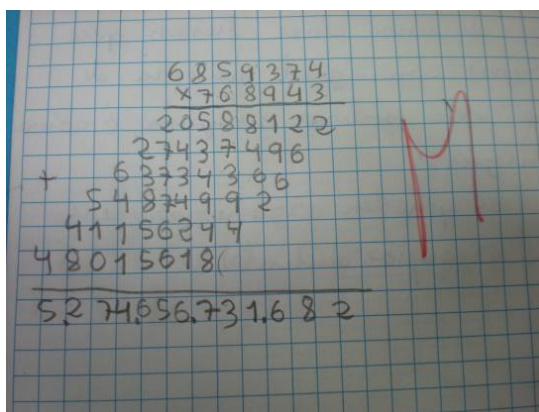 6859374
×768943
20588122
27437496
+ 63734366
54874992
41156244
48015618
5.274.656.731.682
M